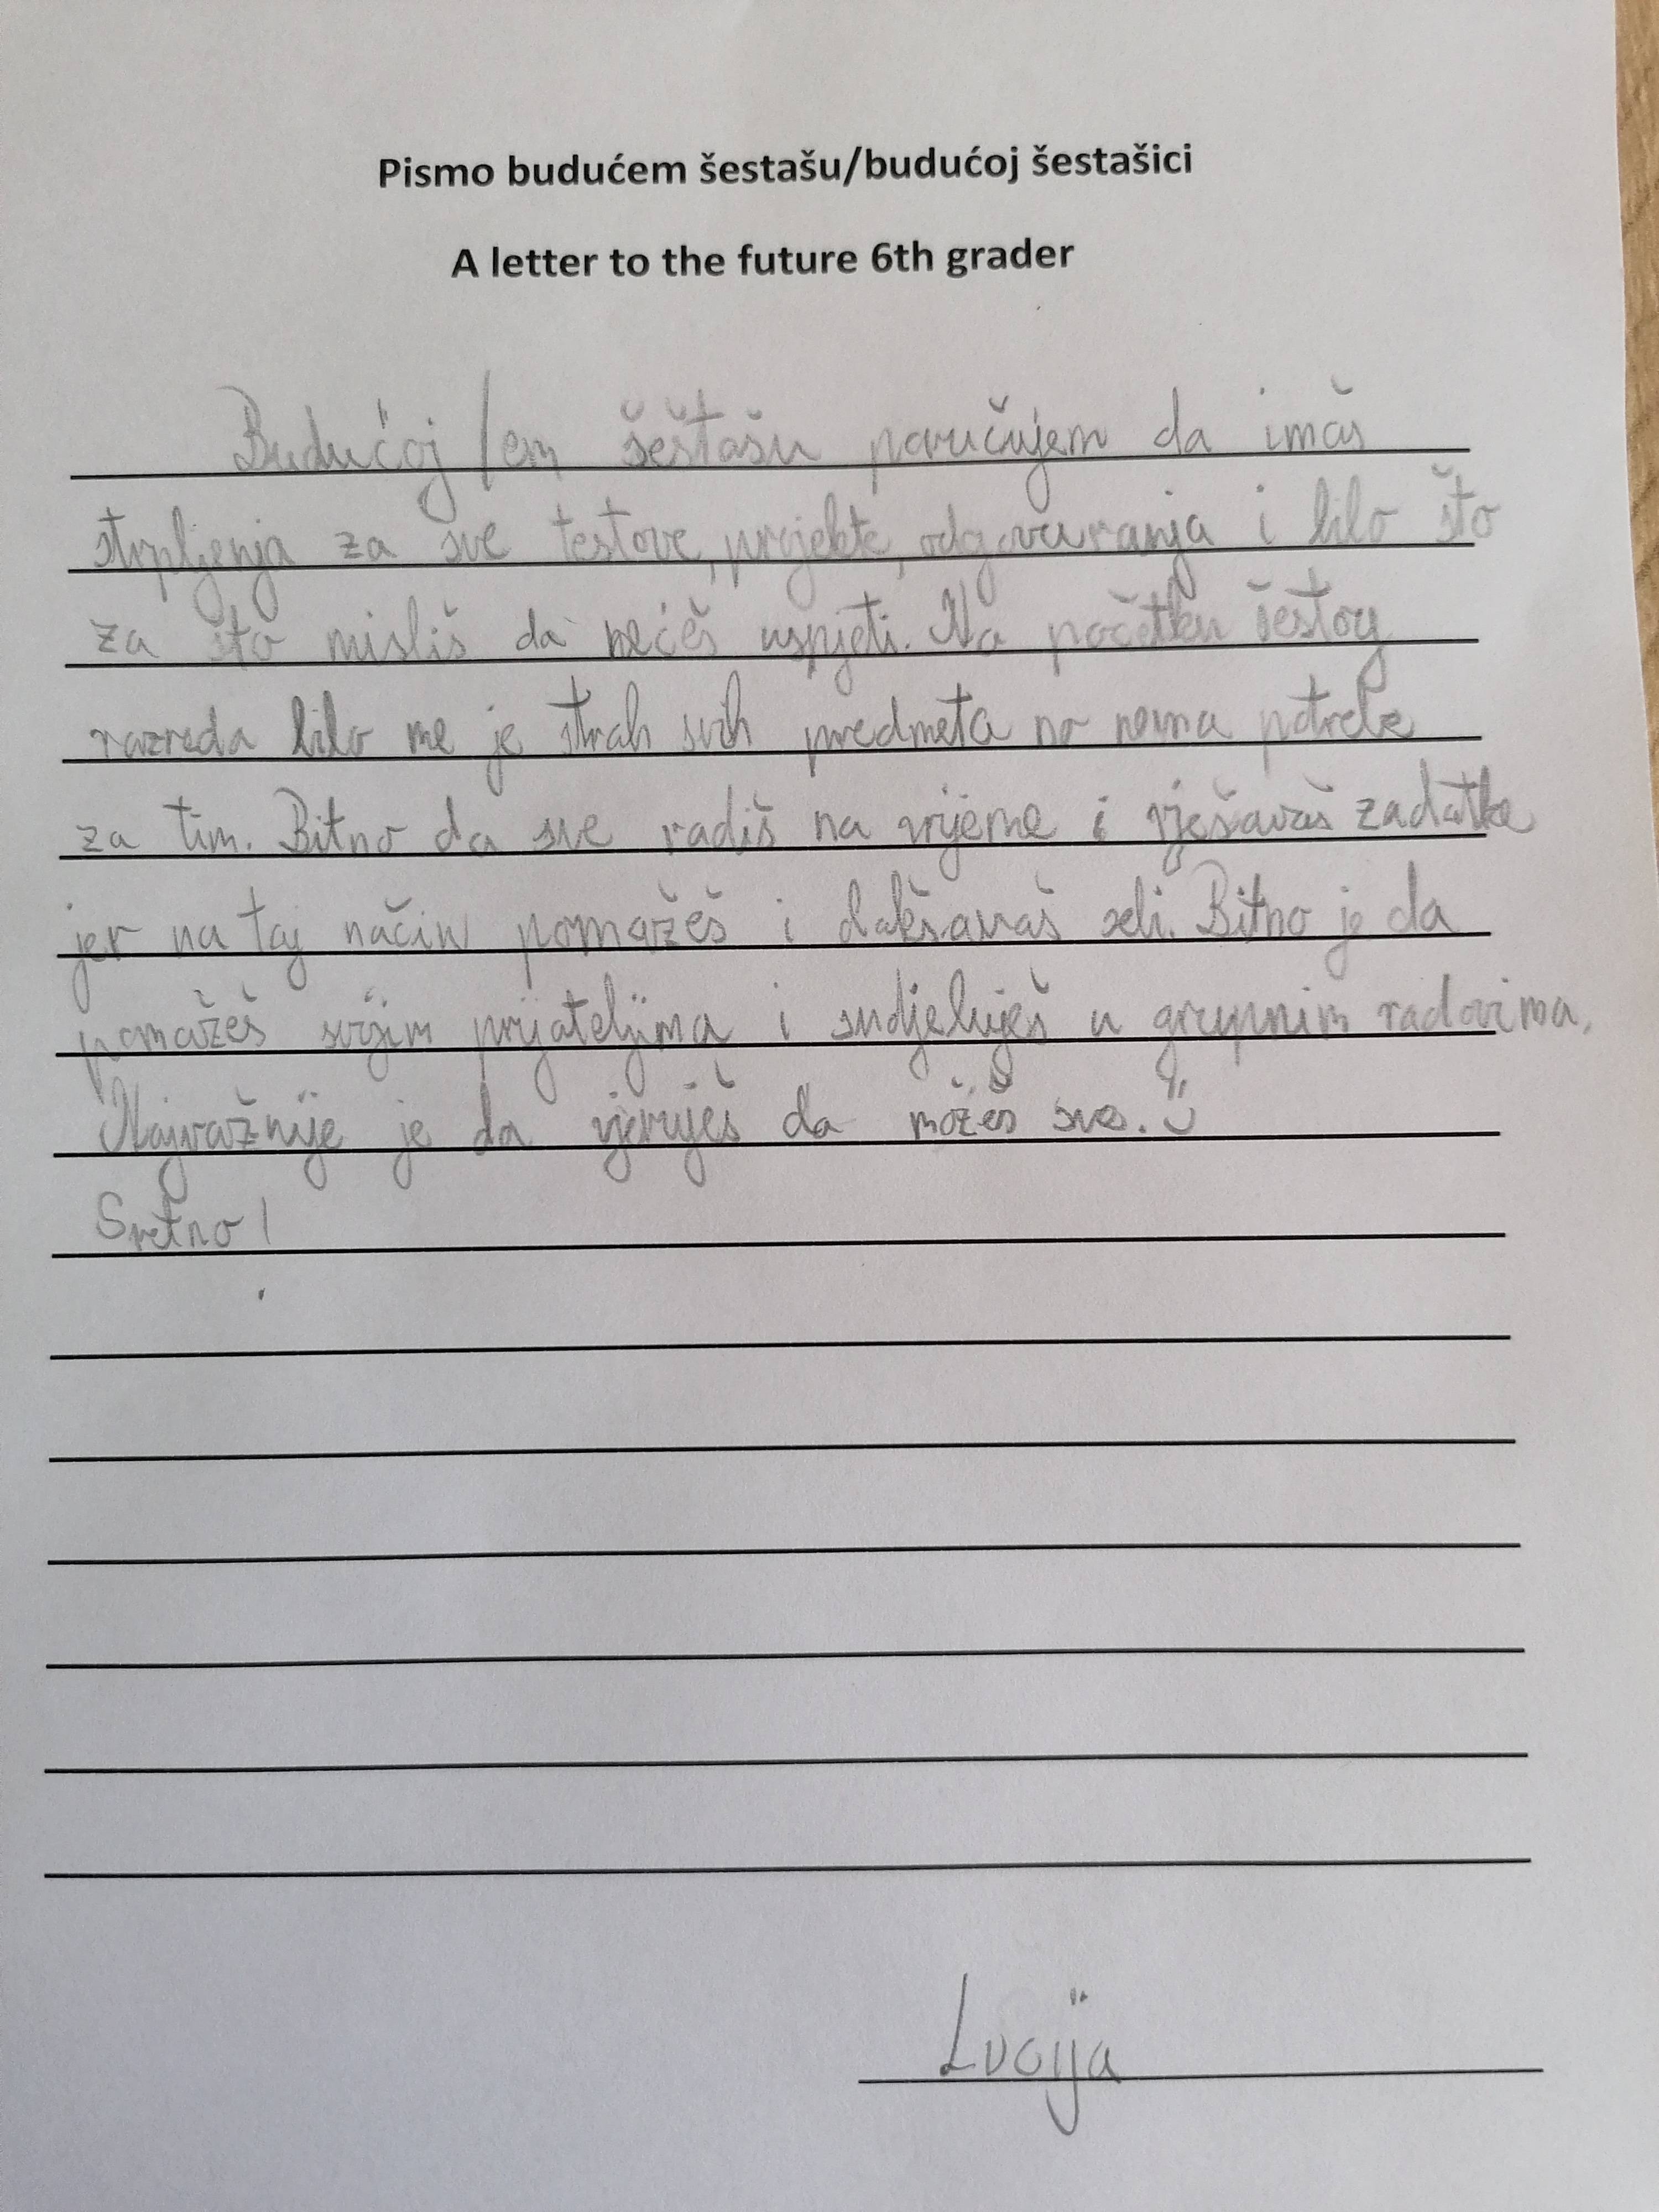 Pismo budućem šestašu/budućoj šestašici
A letter to the future 6th grader
Budućoj/em šeštašu poručujem da imaš
strpljenja za sve testove, projekte, odgovaranja i bilo što
za što misliš da nećeš uspjeti. Na početku šestog
razreda bilo me je strah svih predmeta no nema potrebe
za tim. Bitno da sve radiš na vrijeme i rješavaš zadatke
jer na taj način pomažeš i olakšavaš sebi. Bitno je da
pomažeš svojim prijateljima i sudjeluješ u grupnim radovima.
Najvažnije je da vjeruješ da možeš sve. :)
Sretno!
Lucija